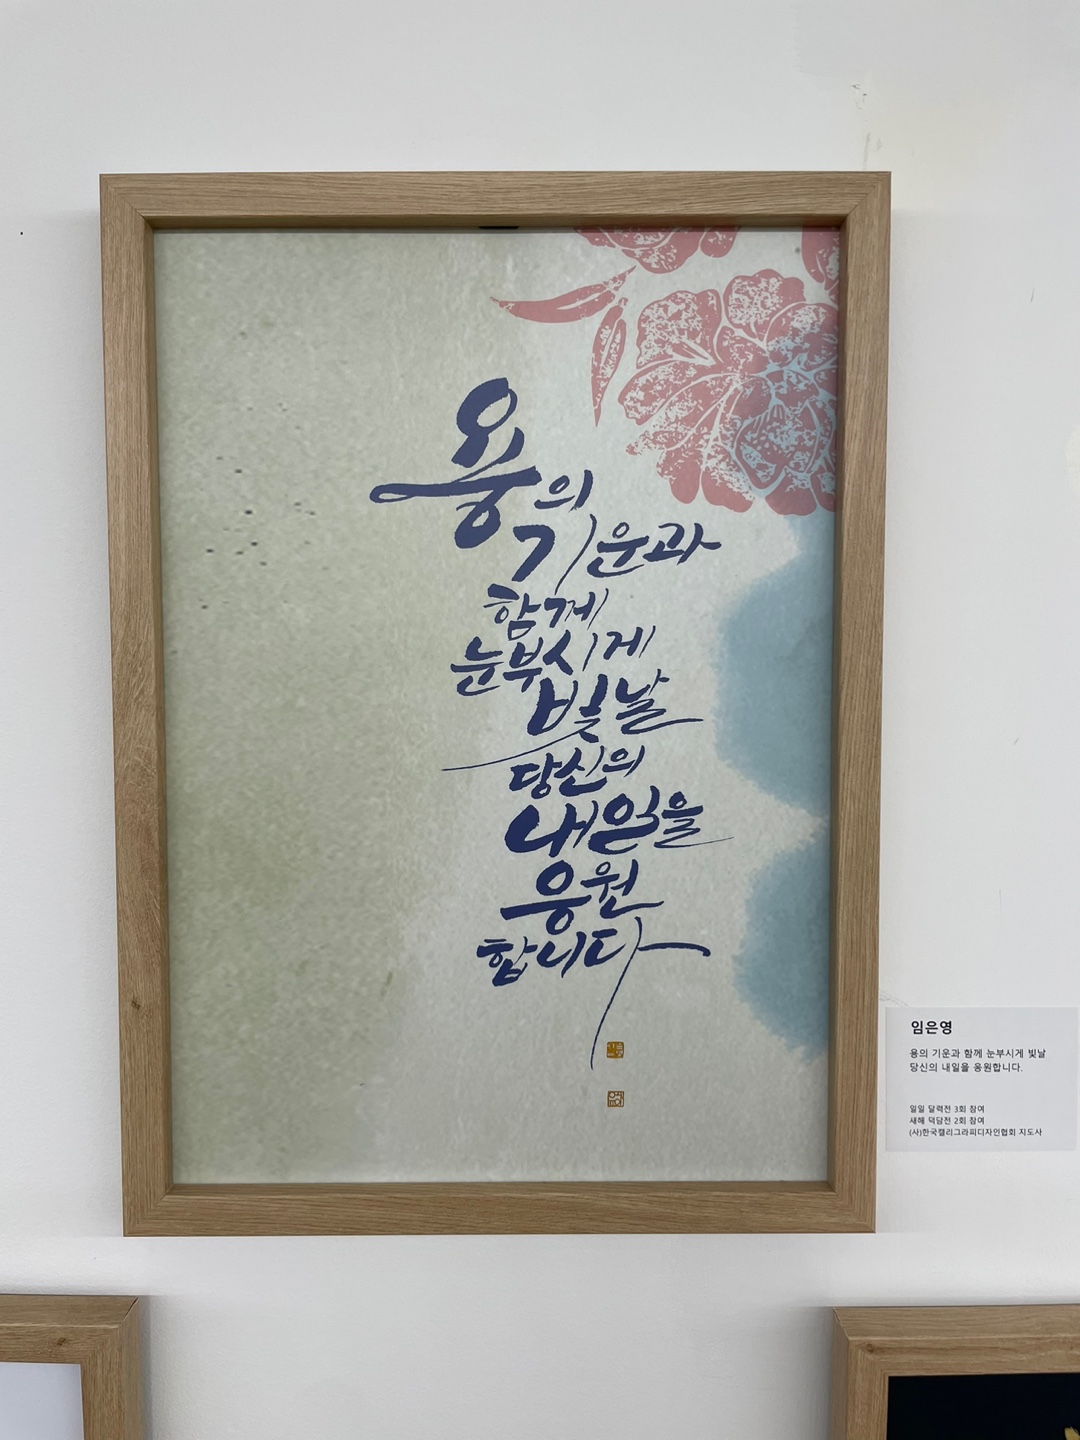 용의
기운과
함께
눈부시게
빛날
당신의
내일을
응원
합니다
임은영
용의 기운과 함께 눈부시게 빛날
당신의 내일을 응원합니다.
일일 달력전 3회 참여
새해 덕담전 2회 참여
(사)한국캘리그라피디자인협회 지도사